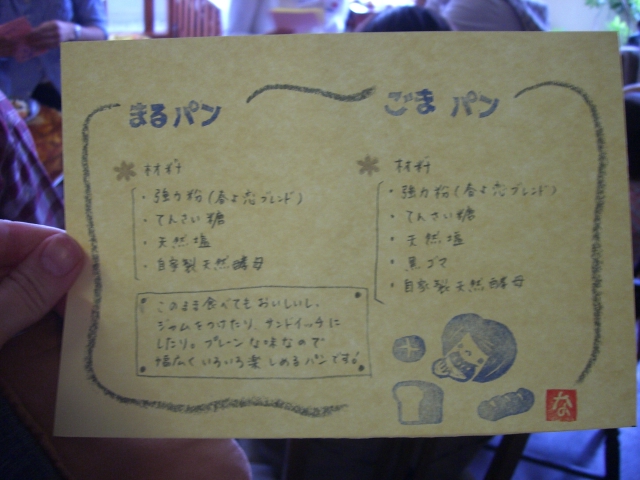 まるパン
材料
・強力粉(春よ恋ブレンド)
・てんさい糖
・天然塩
・自家製天然酵母
このまま食べてもおいしいし、
ジャムをつけたり、サンドイッチに
したり。プレーンな味なので
幅広くいろいろ楽しめるパンです。
ごまパン
材料
・強力粉(春よ恋ブレンド)
・てんさい糖
・天然塩
・黒ゴマ
・自家製天然酵母
な